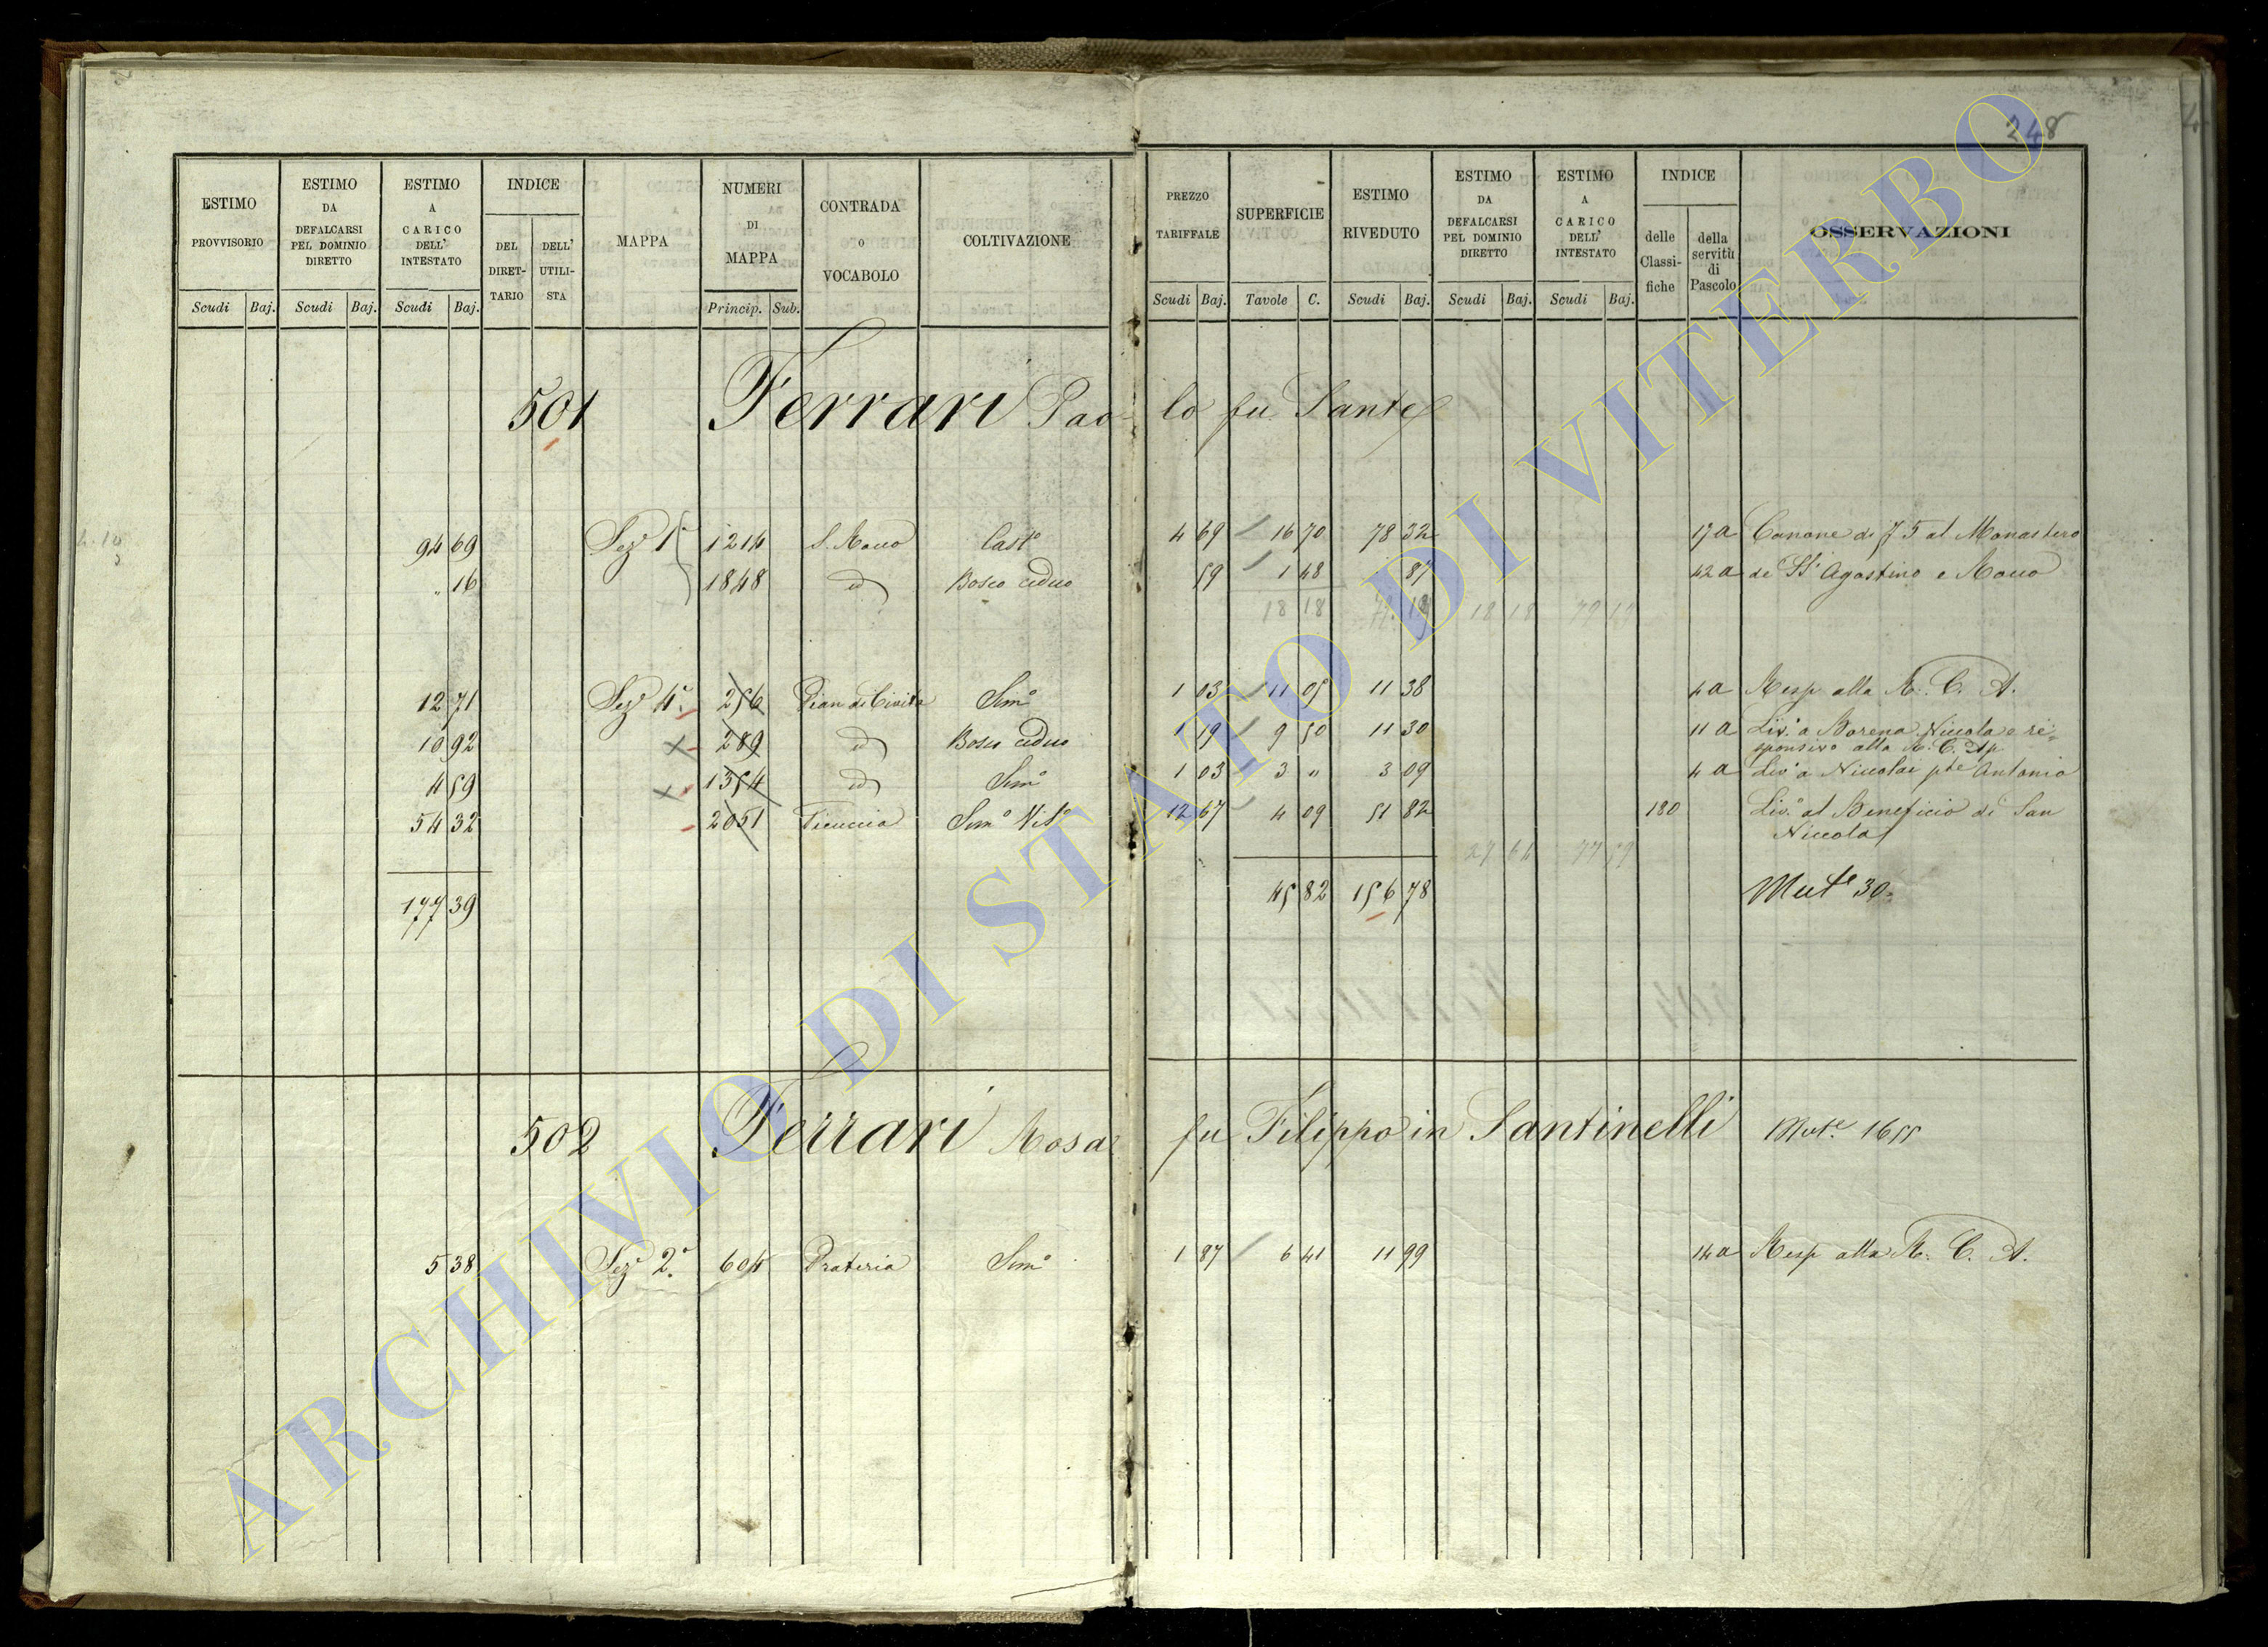 248
ESTIMO PROVVISORIO Scudi Baj.
ESTIMO DA DEFALCARSI PEL DOMINIO DIRETTO Scudi Baj.
ESTIMO A CARICO DELL' INTESTATO Scudi Baj.
INDICE DEL DIRET-TARIO DELL' UTILI-STA
MAPPA
NUMERI DI MAPPA Princip. Sub.
CONTRADA O VOCABOLO
COLTIVAZIONE
PREZZO TARIFFALE Scudi Baj.
SUPERFICIE Tavole C.
ESTIMO RIVEDUTO Scudi Baj.
ESTIMO DA DEFALCARSI PEL DOMINIO DIRETTO Scudi Baj.
ESTIMO A CARICO DELL' INTESTATO Scudi Baj.
INDICE delle Classi-fiche della servitù di Pascolo
OSSERVAZIONI
501 Ferrari Pao- lo fu Sante
94 69 Sez.e 1a 1214 S. Rocco Cast.o 4 69 16 70 78 32 17a Canone di 75 al Monastero
" 16 1848 id Bosco ceduo 59 1 48 87 42a de SS. Agostino e Rocco
18 18 79 19 18 18 79 19
12 71 Sez.e 4a 256 Pian di Civita Sem.o 1 03 11 05 11 38 4a Resp. alla R. C. A.
10 92 289 id Bosco ceduo 1 19 9 50 11 30 11a Liv.o a Borena Niccola e re=
sponsivo alla R. C. Ap.
4 59 1354 id Sem.o 1 03 3 " 3 09 4a Liv.o a Niccolai pte Antonio
54 32 2051 Ficuccia Sem.o Vit.o 12 67 4 09 51 82 180 Liv.o al Beneficio di San
Niccola
27 64 77 59
177 39 45 82 156 78 Mut.e 30
502 Ferrari Rosa fu Filippo in Santinelli Mut.e 1655
5 38 Sez.e 2a 604 Prateria Sem.o 1 87 6 41 11 99 14a Resp. alla R. C. A.
ARCHIVIO DI STATO DI VITERBO